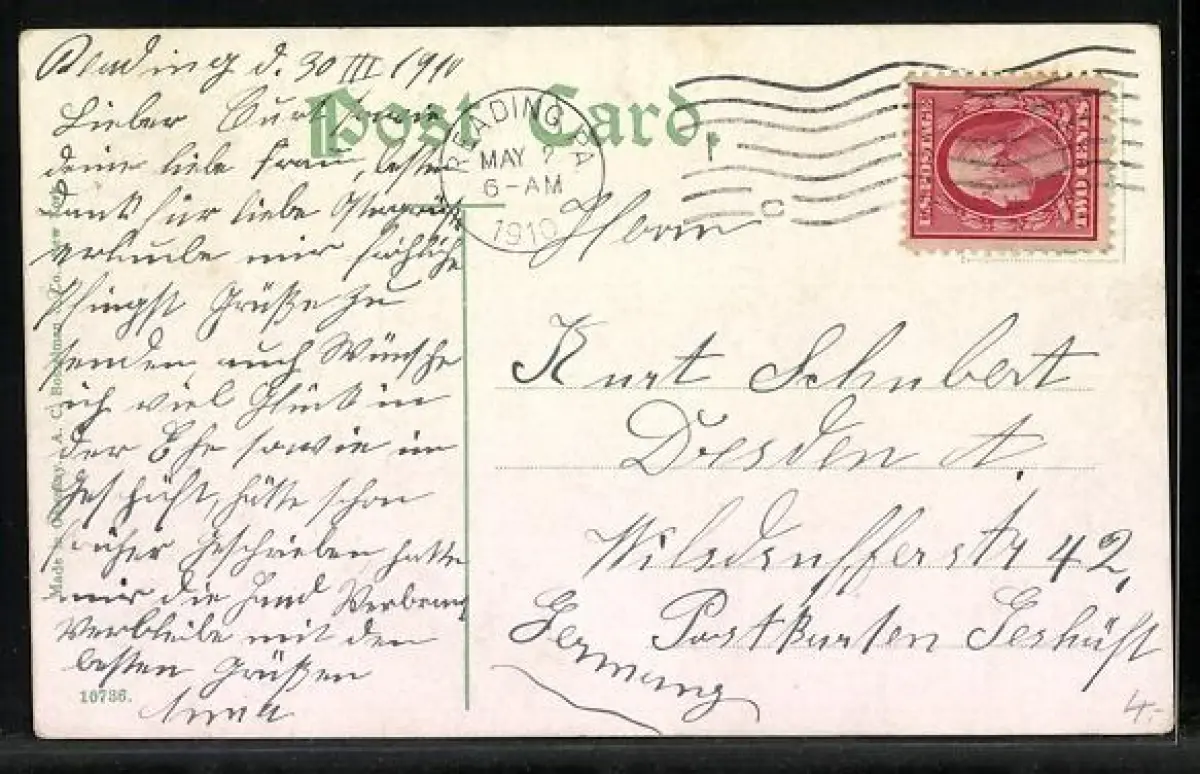 Reading d. 30 III 1910
Lieber Curt sowie
deine liebe Frau, besten
Dank für liebe Ostergrüße
erlaube mir fröhliche
Pfingst Grüße zu
senden auch Wünsche
ich viel Glück in
der Ehe sowie im
Geschäft, hätte schon
früher Geschrieben hatte
mir die Hand Verbrannt
Verbleibe mit den
besten Grüßen
10786.
Made in Germany. A. C. Bosselman & Co. New York
Post Card.
READING PA
MAY 2
6-AM
1910
C
U.S. POSTAGE
TWO CENTS
Herrn
Kurt Schubert
Dresden A.
Wilsdrufferstr 42,
Postkarten Geschäft
Germany
4.-